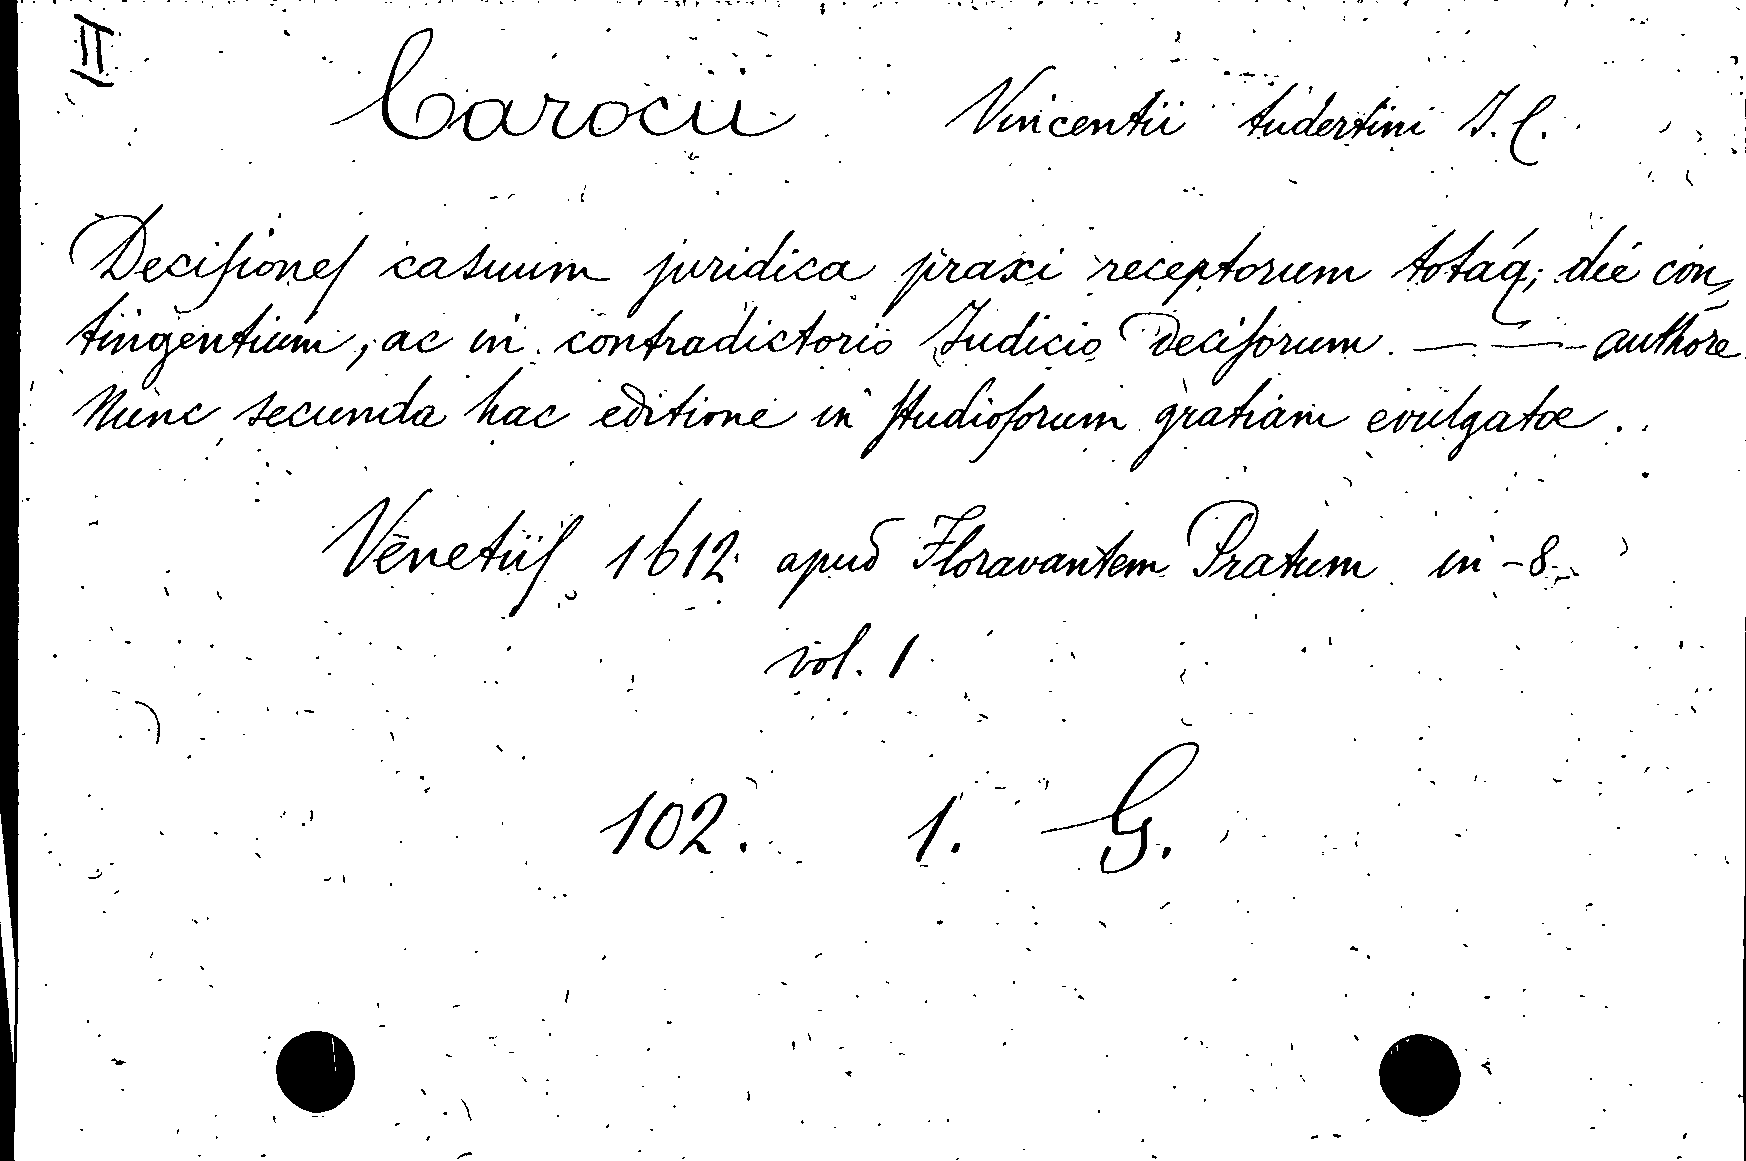 II
Carocii Vincentii tudertini J. C.
Decisiones casuum juridica praxi receptorum totaq; die con,
tingentium, ac in contradictorio Judicio Decisorum. — — authore
Nunc secunda hac editione in studiosorum gratiam evulgatæ.
Venetiis 1612 apud Floravantem Pratum in-8.
vol. 1
102. 1. G.